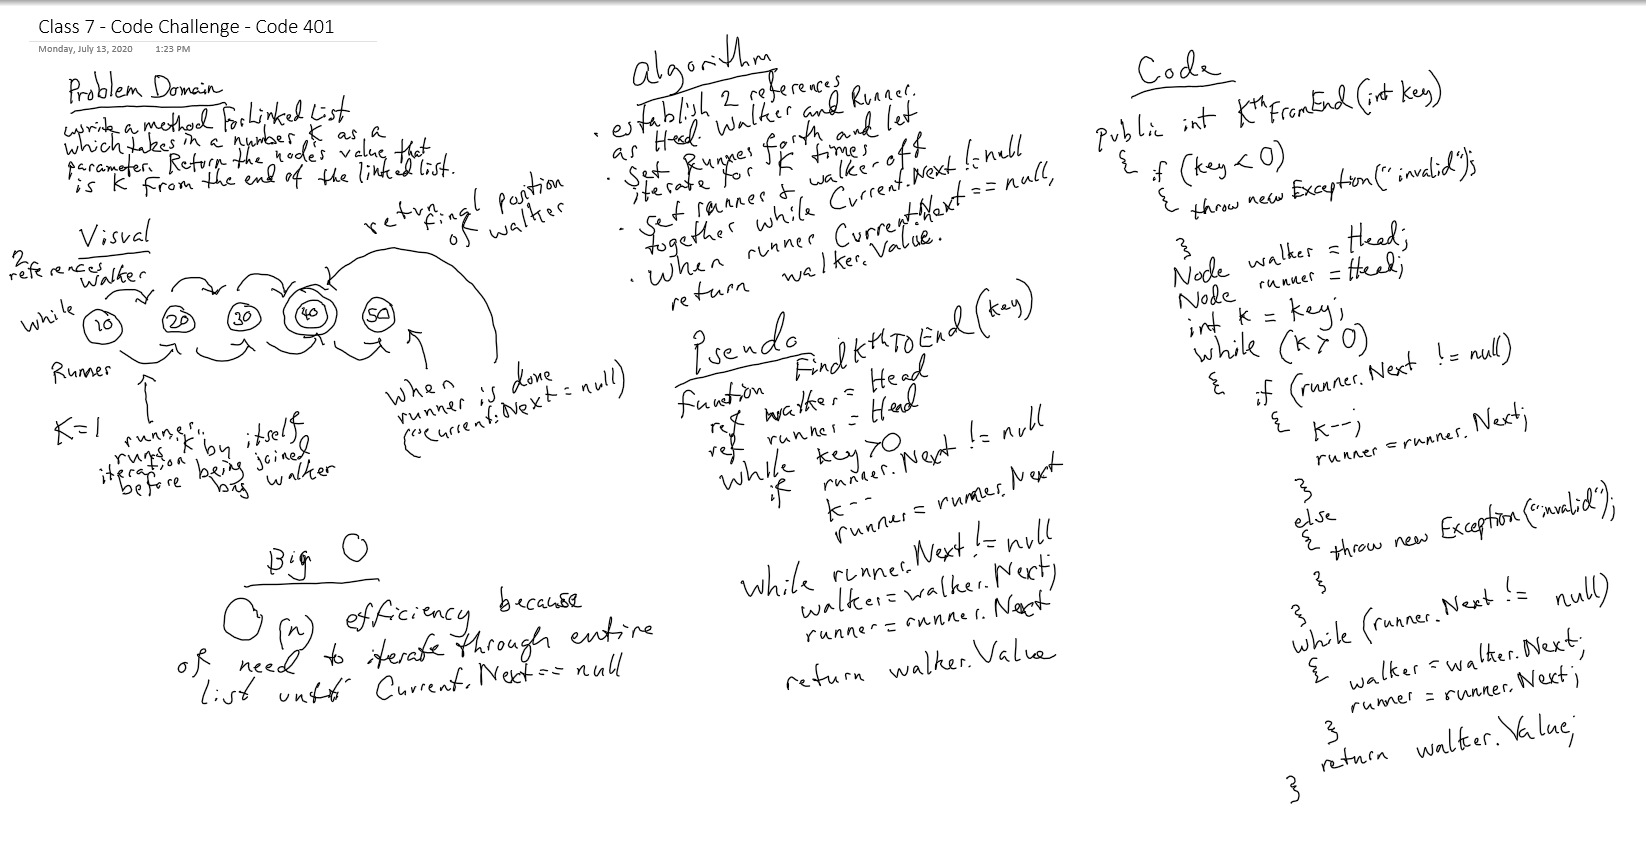 Class 7 - Code Challenge - Code 401
Monday, July 13, 2020 1:23 PM
Problem Domain
write a method for Linked List
which takes in a number K as a
parameter. Return the node's value that
is K from the end of the linked list.
Visual
2
references
walker
while
10 20 30 40 50
Runner
K=1
runner
runs K by itself
iteration
before being joined
by walker
return
final position
of walker
when
runner is done
("Current.Next = null)
Big O
O(n) efficiency because
of need to iterate through entire
list until Current.Next == null
algorithm
· establish 2 references
as Head. Walker and Runner.
· Set Runner forth and let
iterate for K times
· Set runner & walker off
together while Current.Next != null
· When runner Current.Next == null,
return walker.Value.
Pseudo
function FindKthToEnd(key)
ref walker = Head
ref runner = Head
while key >0
if runner.Next != null
k--
runner = runner.Next
while runner.Next != null
walker = walker.Next;
runner = runner.Next
return walker.Value
Code
public int KthFromEnd(int key)
{ if (key < 0)
{ throw new Exception("invalid");
}
Node walker = Head;
Node runner = Head;
int k = key;
while (k > 0)
{ if (runner.Next != null)
{ k--;
runner = runner.Next;
}
else
{ throw new Exception("invalid");
}
}
while (runner.Next != null)
{ walker = walker.Next;
runner = runner.Next;
}
return walker.Value;
}